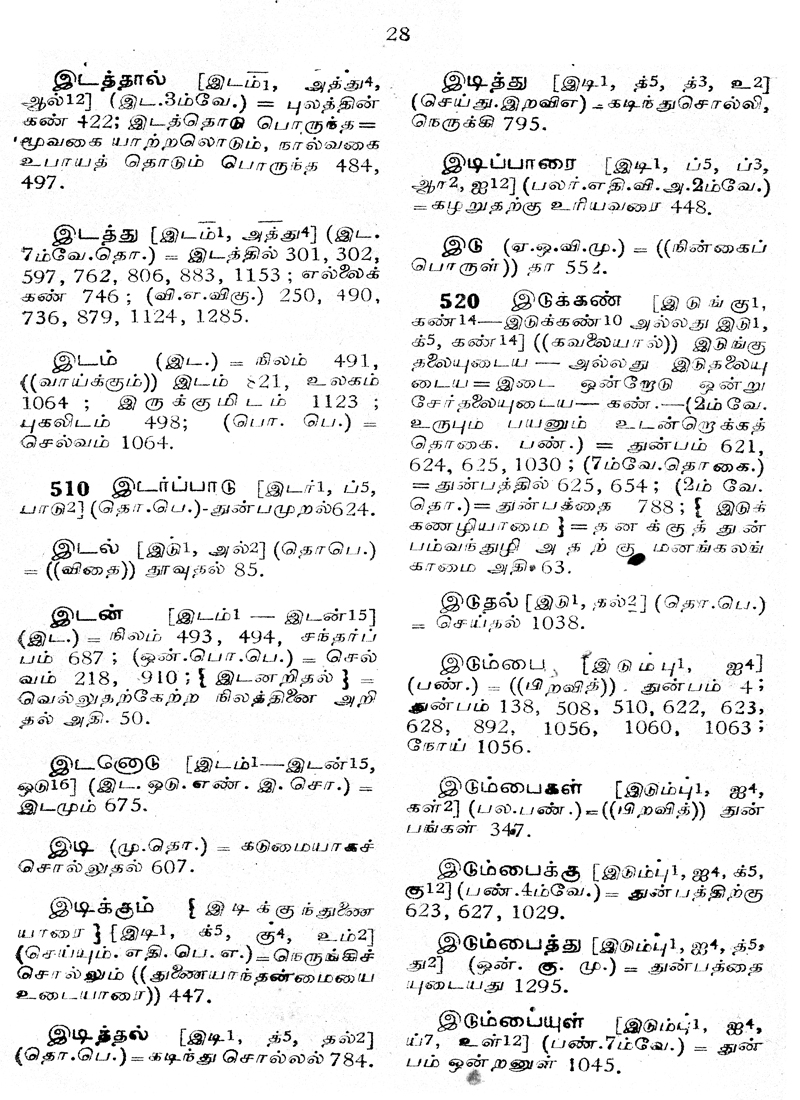 28
இடத்தால் [இடம்1, அத்து4,
ஆல்12] (இட.3ம்வே.) = புலத்தின்
கண் 422; இடத்தொடு பொருந்த=
மூவகை யாற்றலொடும், நால்வகை
உபாயத் தொடும் பொருந்த 484,
497.
இடத்து [இடம்1, அத்து4] (இட.
7ம்வே.தொ.) = இடத்தில் 301, 302,
597, 762, 806, 883, 1153; எல்லைக்
கண் 746; (வி.எ.விகு.) 250, 490,
736, 879, 1124, 1285.
இடம் (இட.) = நிலம் 491,
((வாய்க்கும்)) இடம் 821, உலகம்
1064; இருக்குமிடம் 1123;
புகலிடம் 498; (பொ. பெ.) =
செல்வம் 1064.
510 இடர்ப்பாடு [இடர்1, ப்5,
பாடு2] (தொ.பெ.)-துன்பமுறல்624.
இடல் [இடு1, அல்2] (தொபெ.)
= ((விதை)) தூவுதல் 85.
இடன் [இடம்1 — இடன்15]
(இட.) = நிலம் 493, 494, சந்தர்ப்
பம் 687; (ஒன்.பொ.பெ.) = செல்
வம் 218, 910; { இடனறிதல் } =
வெல்லுதற்கேற்ற நிலத்தினை அறி
தல் அதி. 50.
இடனொடு [இடம்1—இடன்15,
ஒடு16] (இட. ஒடு. எண். இ. சொ.) =
இடமும் 675.
இடி (மு.தொ.) = கடுமையாகச்
சொல்லுதல் 607.
இடிக்கும் { இடிக்குந்துணை
யாரை } [இடி1, க்5, கு4, உம்2]
(செய்யும். எதி. பெ. எ.)=நெருங்கிச்
சொல்லும் ((துணையாந்தன்மையை
உடையாரை)) 447.
இடித்தல் [இடி1, த்5, தல்2]
(தொ.பெ.)=கடிந்து சொல்லல் 784.
இடித்து [இடி1, த்5, த்3, உ2]
(செய்து.இறவிஎ) =கடிந்துசொல்லி,
நெருக்கி 795.
இடிப்பாரை [இடி1, ப்5, ப்3,
ஆர்2, ஐ12] (பலர்.எதி.வி.அ.2ம்வே.)
=கழறுதற்கு உரியவரை 448.
இடு (ஏ.ஒ.வி.மு.) = ((நின்கைப்
பொருள்)) தா 552.
520 இடுக்கண் [இடுங்கு1,
கண்14—இடுக்கண்10 அல்லது இடு1,
க்5, கண்14] ((கவலையால்)) இடுங்கு
தலையுடைய — அல்லது இடுதலையு
டைய=இடை ஒன்றோடு ஒன்று
சேர்தலையுடைய— கண்.—(2ம்வே.
உருபும் பயனும் உடன்றொக்கத்
தொகை. பண்.) = துன்பம் 621,
624, 625, 1030; (7ம்வே.தொகை.)
=துன்பத்தில் 625, 654; (2ம் வே.
தொ.)=துன்பத்தை 788; { இடுக்
கணழியாமை }=தனக்குத் துன்
பம்வந்துழி அதற்கு மனங்கலங்
காமை அதி. 63.
இடுதல் [இடு1, தல்2] (தொ.பெ.)
= செய்தல் 1038.
இடும்பை [இடும்பு1, ஐ4]
(பண்.) = ((பிறவித்)) துன்பம் 4;
துன்பம் 138, 508, 510, 622, 623,
628, 892, 1056, 1060, 1063;
நோய் 1056.
இடும்பைகள் [இடும்பு1, ஐ4,
கள்2] (பல.பண்.)=((பிறவித்)) துன்
பங்கள் 347.
இடும்பைக்கு [இடும்பு1, ஐ4, க்5,
கு12] (பண்.4ம்வே.)= துன்பத்திற்கு
623, 627, 1029.
இடும்பைத்து [இடும்பு1, ஐ4, த்5,
து2] (ஒன். கு. மு.) = துன்பத்தை
யுடையது 1295.
இடும்பையுள் [இடும்பு1, ஐ4,
ய்7, உள்12] (பண்.7ம்வே.) = துன்
பம் ஒன்றனுள் 1045.